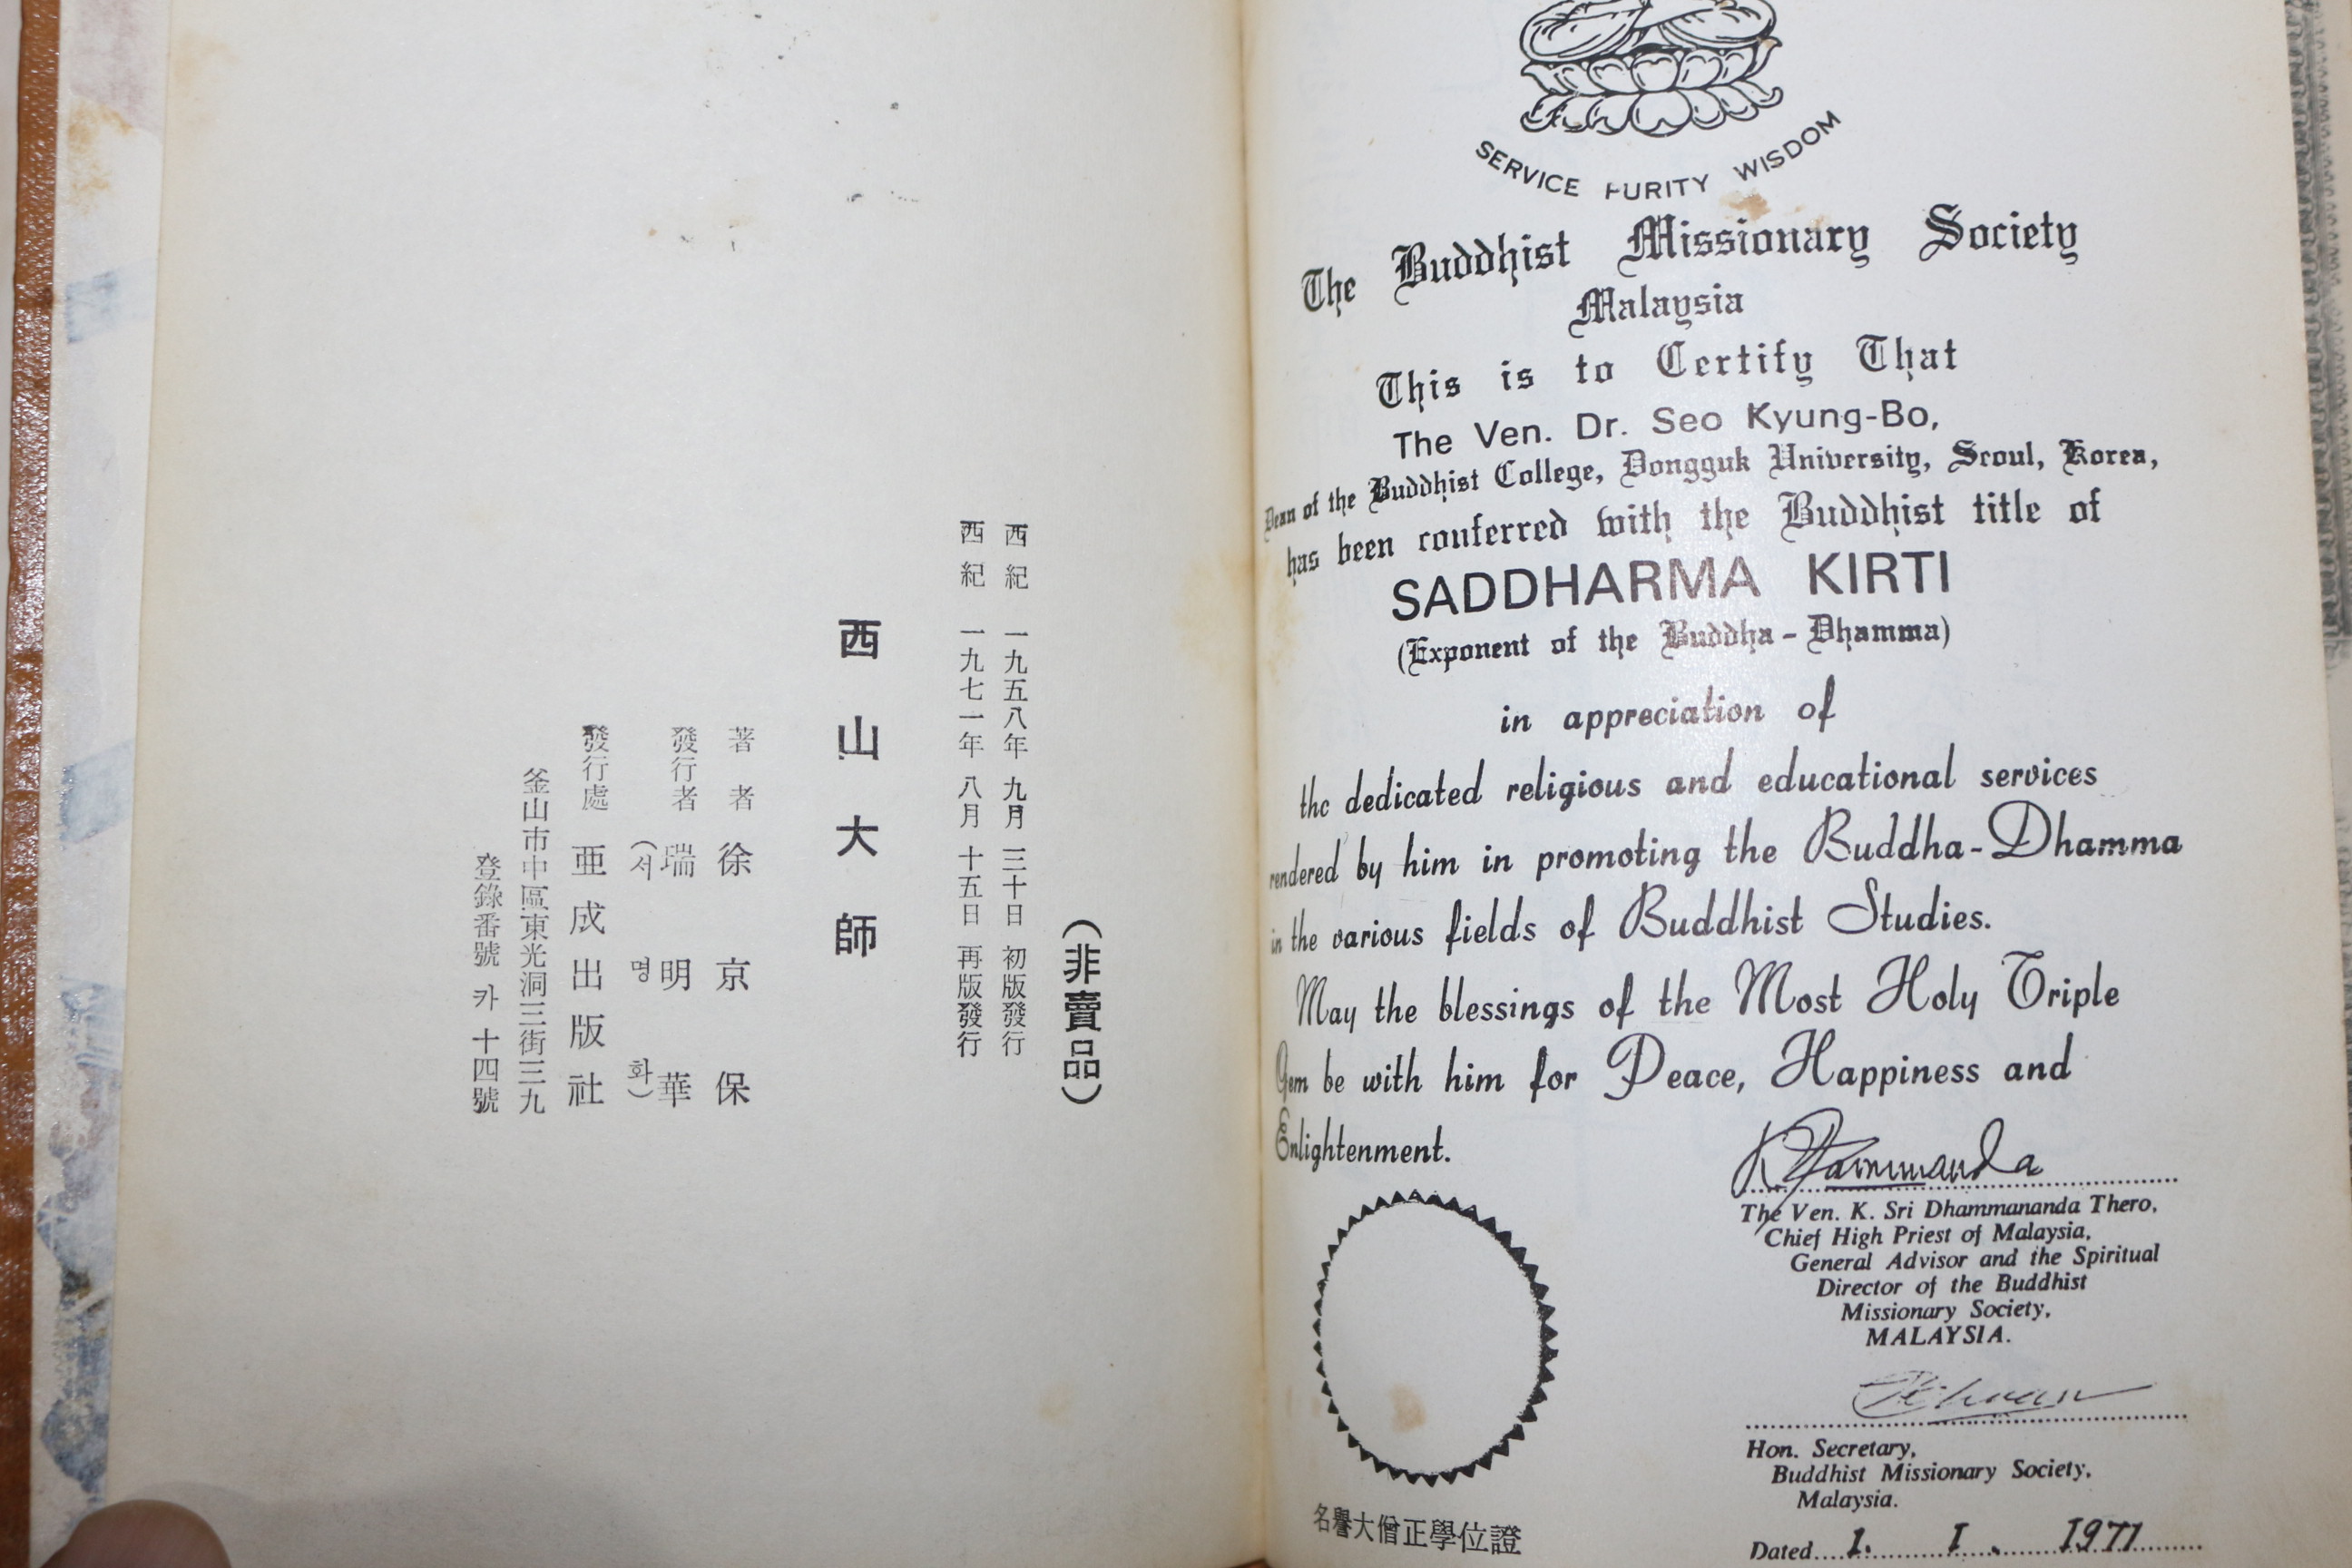 (非賣品)
西紀 一九五八年 九月 三十日 初版發行
西紀 一九七一年 八月 十五日 再版發行
西山大師
著者 徐京保
發行者 瑞明華
(서명화)
發行處 亜成出版社
釜山市中區東光洞三街三九
登錄番號 카 十四號
SERVICE PURITY WISDOM
The Buddhist Missionary Society
Malaysia
This is to Certify That
The Ven. Dr. Seo Kyung-Bo,
Dean of the Buddhist College, Dongguk University, Seoul, Korea,
has been conferred with the Buddhist title of
SADDHARMA KIRTI
(Exponent of the Buddha - Dhamma)
in appreciation of
the dedicated religious and educational services
rendered by him in promoting the Buddha-Dhamma
in the various fields of Buddhist Studies.
May the blessings of the Most Holy Triple
Gem be with him for Peace, Happiness and
Enlightenment.
The Ven. K. Sri Dhammananda Thero,
Chief High Priest of Malaysia,
General Advisor and the Spiritual
Director of the Buddhist
Missionary Society,
MALAYSIA.
Hon. Secretary,
Buddhist Missionary Society,
Malaysia.
Dated....1. I. 1971
名譽大僧正學位證